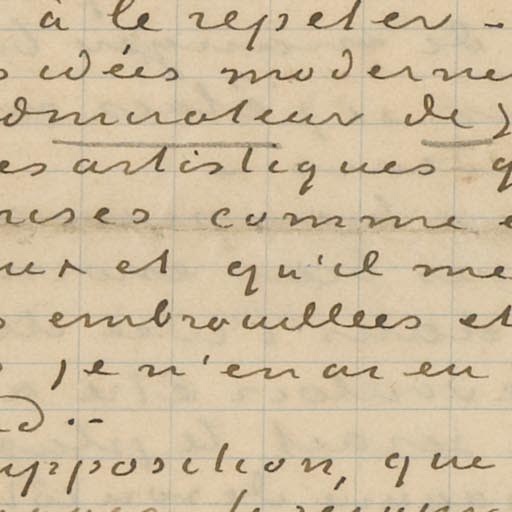 à le repeter -
idées moderne
admirateur de
es artistiques q
rises comme e
ux et qu'il me
s embrouillées et
je n'en ai eu
d.-
upposition, que